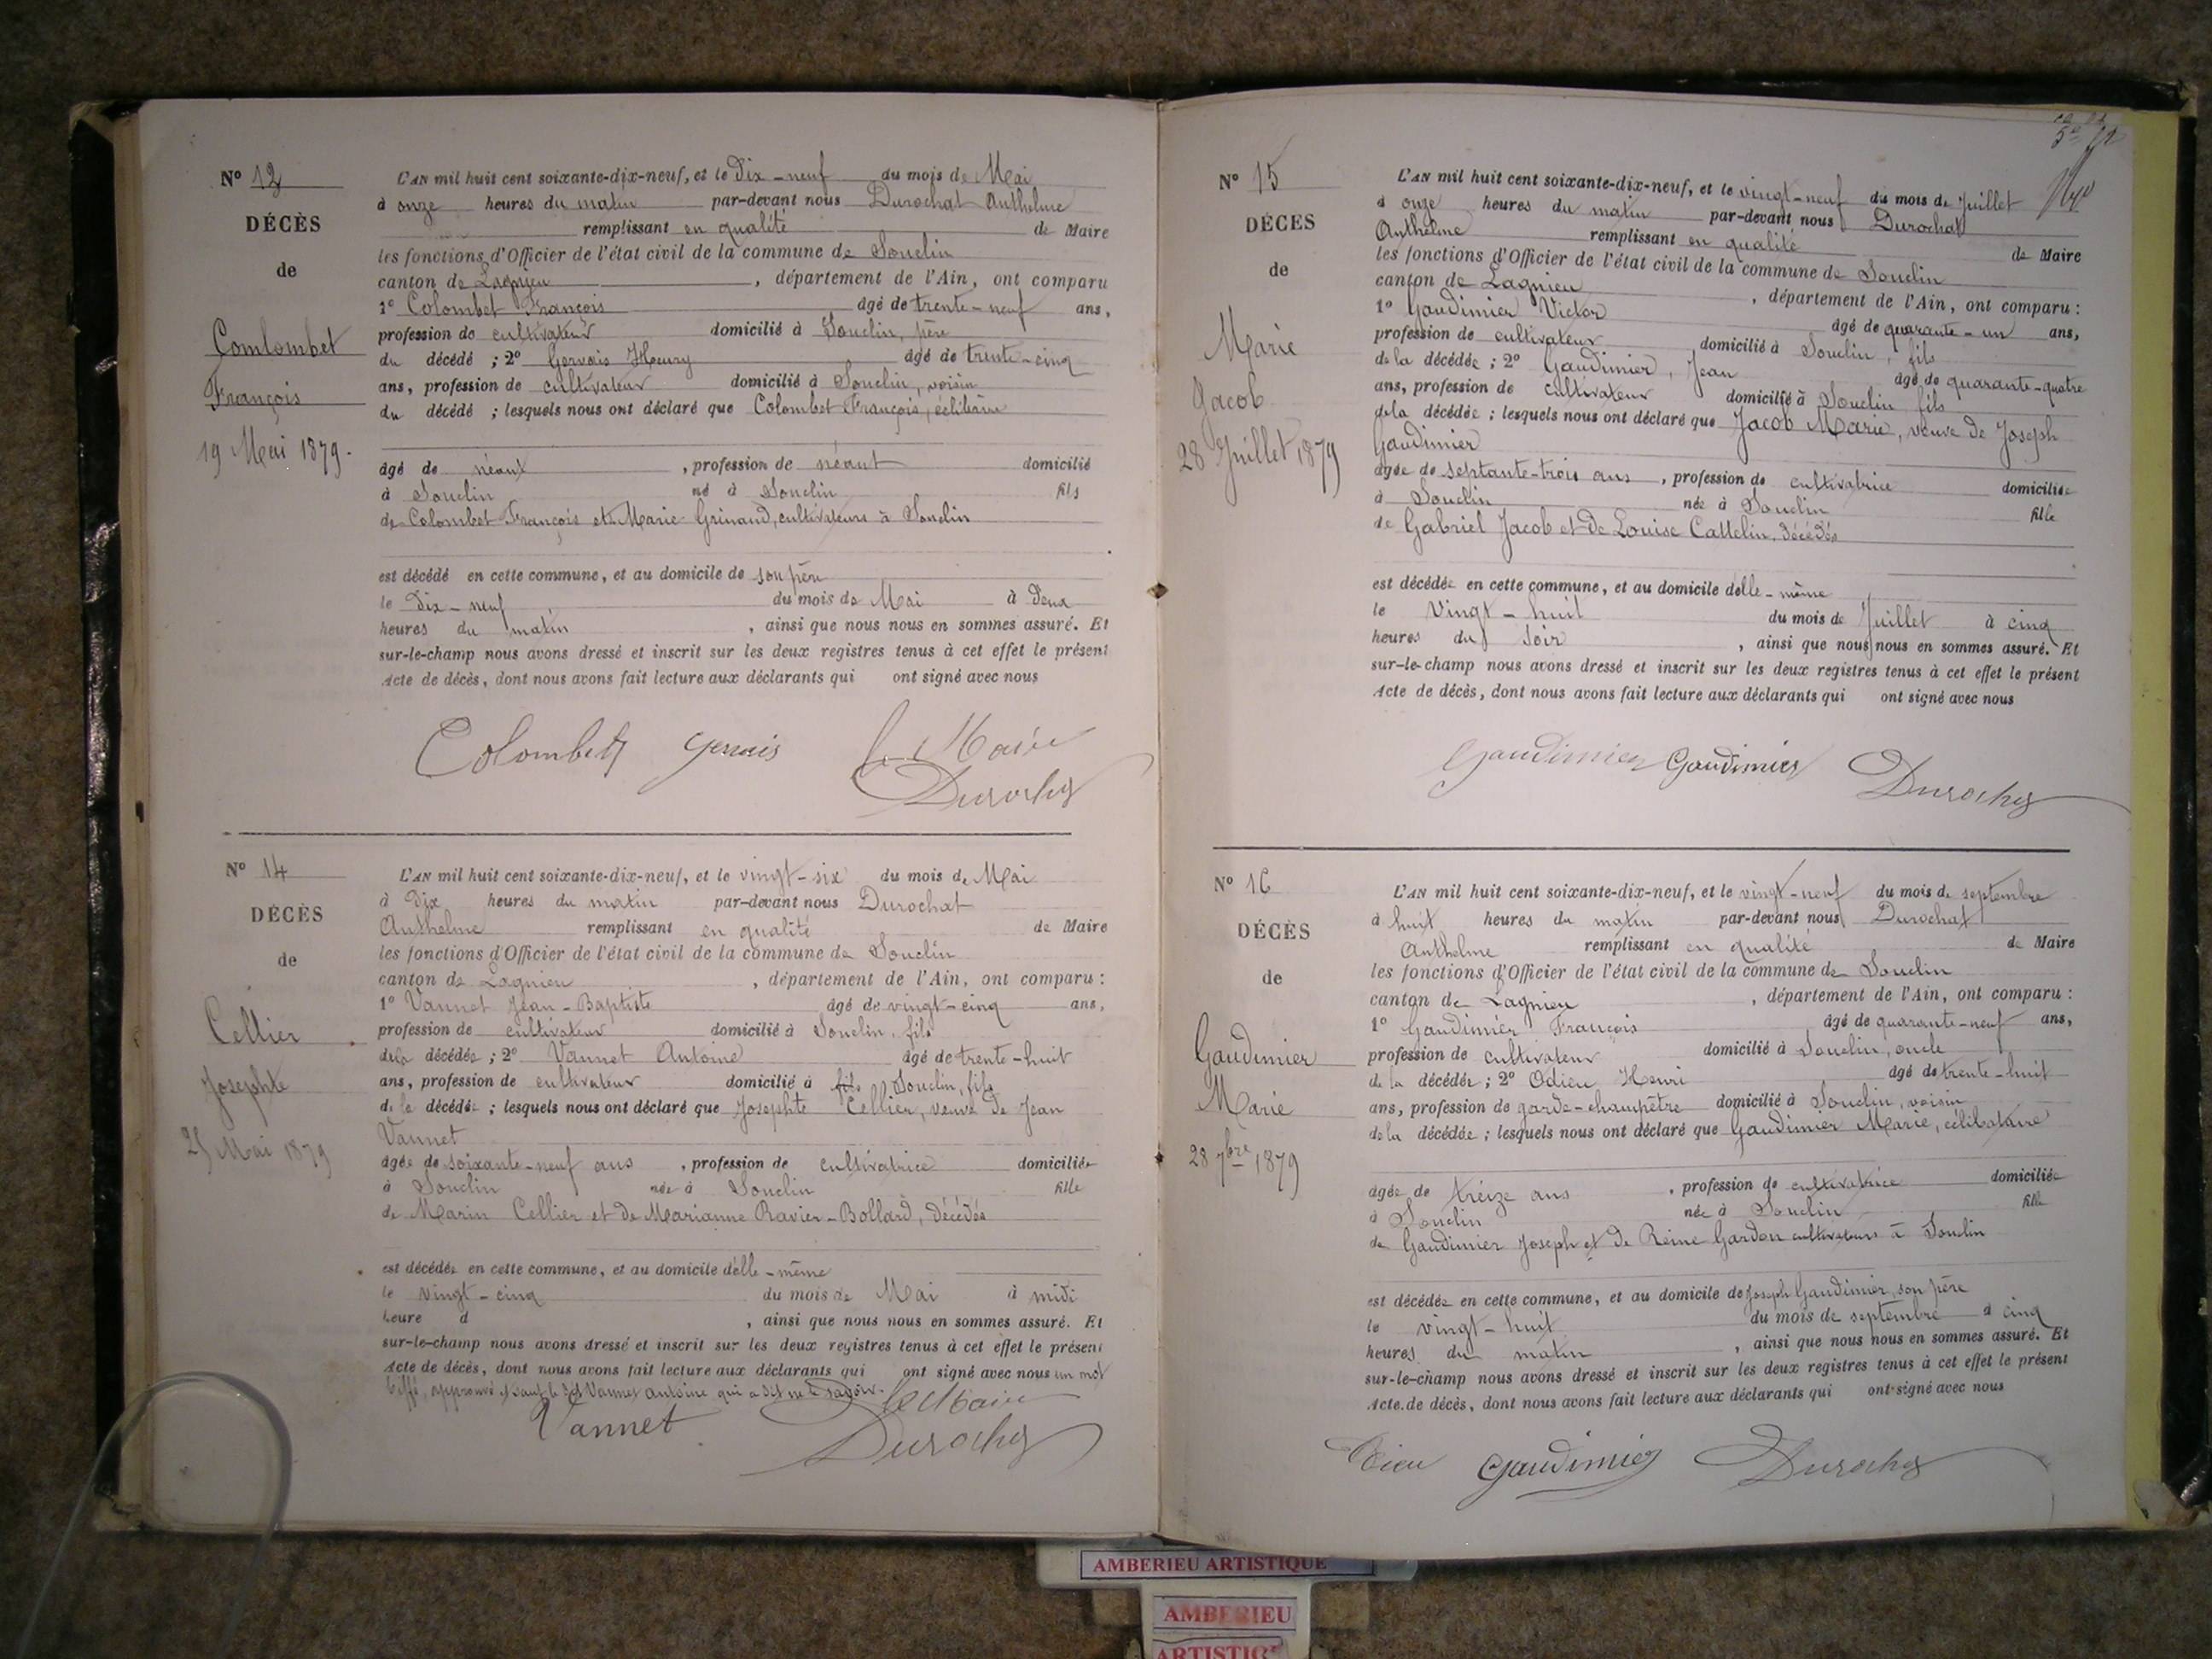 Nº 12
DÉCÈS
de
Comlombet
François
19 Mai 1879.
L'AN mil huit cent soixante-dix-neuf, et le Dix-neuf du mois de Mai
à onze heures du matin par-devant nous Durochat Anthelme
remplissant en qualité de Maire
les fonctions d'Officier de l'état civil de la commune de Souclin
canton de Lagnieu, département de l'Ain, ont comparu
1º Colombet François âgé de trente-neuf ans,
profession de cultivateur domicilié à Souclin, père
du décédé ; 2º Gervais Henry âgé de trente-cinq
ans, profession de cultivateur domicilié à Souclin, voisin
du décédé ; lesquels nous ont déclaré que Colombet François, célibataire
âgé de néant, profession de néant domicilié
à Souclin né à Souclin fils
de Colombet François et Marie Grinand, cultivateurs à Souclin
est décédé en cette commune, et au domicile de son père
le Dix-neuf du mois de Mai à Deux
heures du matin, ainsi que nous nous en sommes assuré. Et
sur-le-champ nous avons dressé et inscrit sur les deux registres tenus à cet effet le présent
Acte de décès, dont nous avons fait lecture aux déclarants qui ont signé avec nous
Colombet Gervais Le Maire
Durochat
Nº 14
DÉCÈS
de
Cellier
Josephte
25 Mai 1879
L'AN mil huit cent soixante-dix-neuf, et le vingt-six du mois de Mai
à Dix heures du matin par-devant nous Durochat
Anthelme remplissant en qualité de Maire
les fonctions d'Officier de l'état civil de la commune de Souclin
canton de Lagnieu, département de l'Ain, ont comparu :
1º Vannet Jean-Baptiste âgé de vingt-cinq ans,
profession de cultivateur domicilié à Souclin, fils
dela décédée ; 2º Vannet Antoine âgé de trente-huit
ans, profession de cultivateur domicilié à fils Souclin, fils
de la décédée ; lesquels nous ont déclaré que Josephte Cellier, veuve de Jean
Vannet
âgée de soixante-neuf ans, profession de cultivatrice domiciliée
à Souclin née à Souclin fille
de Marin Cellier et de Marianne Ravier-Bollard, décédés
est décédée en cette commune, et au domicile d'elle-même
le vingt-cinq du mois de Mai à midi
heure d, ainsi que nous nous en sommes assuré. Et
sur-le-champ nous avons dressé et inscrit sur les deux registres tenus à cet effet le présent
Acte de décès, dont nous avons fait lecture aux déclarants qui ont signé avec nous un mot
biffé, approuvé et sauf le dit Vannet Antoine qui a dit ne le savoir.
Le Maire
Vannet Durochat
5e
Nº 15
DÉCÈS
de
Marie
Jacob
28 Juillet 1879
L'AN mil huit cent soixante-dix-neuf, et le vingt-neuf du mois de Juillet
à onze heures du matin par-devant nous Durochat
Anthelme remplissant en qualité de Maire
les fonctions d'Officier de l'état civil de la commune de Souclin
canton de Lagnieu, département de l'Ain, ont comparu :
1º Gaudimier Victor âgé de quarante-un ans,
profession de cultivateur domicilié à Souclin, fils
de la décédée ; 2º Gaudimier, Jean âgé de quarante-quatre
ans, profession de cultivateur domicilié à Souclin fils
dela décédée ; lesquels nous ont déclaré que Jacob Marie, veuve de Joseph
Gaudimier
âgée de septante-trois ans, profession de cultivatrice domiciliée
à Souclin née à Souclin fille
de Gabriel Jacob et de Louise Cattelin, décédés
est décédée en cette commune, et au domicile d'elle-même
le Vingt-huit du mois de Juillet à cinq
heures du soir, ainsi que nous nous en sommes assuré. Et
sur-le-champ nous avons dressé et inscrit sur les deux registres tenus à cet effet le présent
Acte de décès, dont nous avons fait lecture aux déclarants qui ont signé avec nous
Gaudimier Gaudimier Durochat
Nº 16
DÉCÈS
de
Gaudimier
Marie
28 7bre 1879
L'AN mil huit cent soixante-dix-neuf, et le vingt-neuf du mois de septembre
à huit heures du matin par-devant nous Durochat
Anthelme remplissant en qualité de Maire
les fonctions d'Officier de l'état civil de la commune de Souclin
canton de Lagnieu, département de l'Ain, ont comparu :
1º Gaudimier François âgé de quarante-neuf ans,
profession de cultivateur domicilié à Souclin, oncle
de la décédée ; 2º Odieu Henri âgé de trente-huit
ans, profession de garde-champêtre domicilié à Souclin, voisin
dela décédée ; lesquels nous ont déclaré que Gaudimier Marie, célibataire
âgée de treize ans, profession de cultivatrice domiciliée
à Souclin née à Souclin fille
de Gaudimier Joseph et de Reine Gardon cultivateurs à Souclin
est décédée en cette commune, et au domicile de Joseph Gaudimier, son père
le vingt-huit du mois de septembre à cinq
heures du matin, ainsi que nous nous en sommes assuré. Et
sur-le-champ nous avons dressé et inscrit sur les deux registres tenus à cet effet le présent
Acte de décès, dont nous avons fait lecture aux déclarants qui ont signé avec nous
Odieu Gaudimier Durochat
AMBERIEU ARTISTIQUE
AMBERIEU
ARTISTIQUE